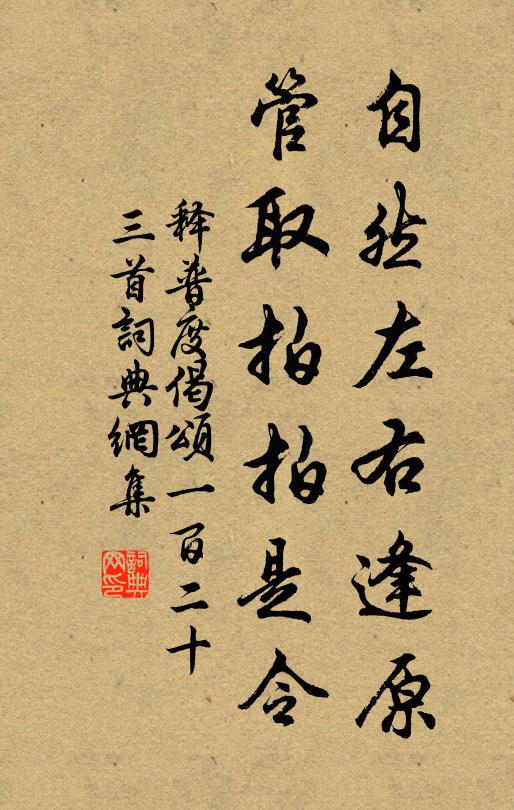 自然左右逢原
管取拍拍是令
释普度偈頌一百二十
三首詞典網集
詞典
网印